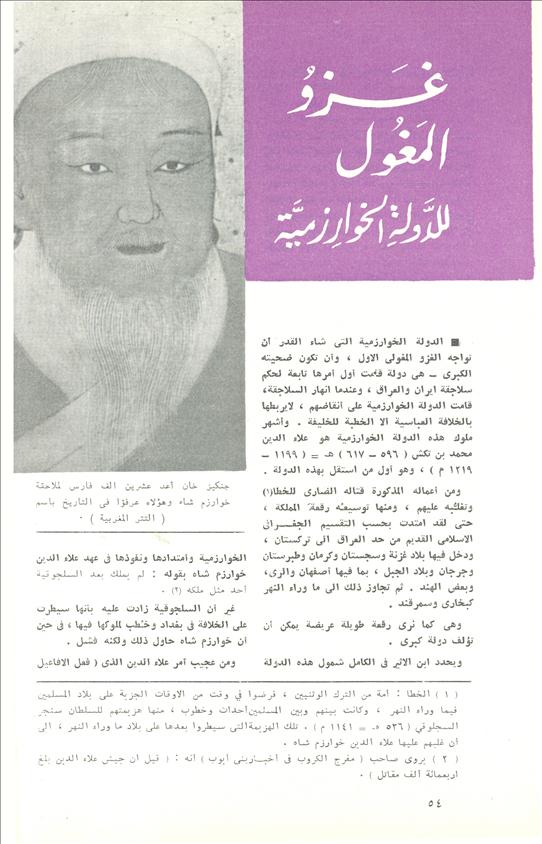 غَـزوُ
المَغُول
للدَّولةِ الخوارِزميَّة
■ الدولة الخوارزمية التى شاء القدر أن
تواجه الغزو المغولى الاول ، وأن تكون ضحيته
الكبرى – هى دولة قامت أول أمرها تابعة لحكم
سلاجقة ايران والعراق ، وعندما انهار السلاجقة،
قامت الدولة الخوارزمية على أنقاضهم ، لايربطها
بالخلافة العباسية الا الخطبة للخليفة . وأشهر
ملوك هذه الدولة الخوارزمية هو علاء الدين
محمد بن تكش ( ٥٩٦ – ٦١٧ ) هـ = ( ١١٩٩ –
١٢١٩ م ) ، وهو أول من استقل بهذه الدولة .
ومن أعماله المذكورة قتاله الضارى للخطا(١)
وتغلبه عليهم ، ومنها توسيعه رقعة المملكة ،
حتى لقد امتدت بحسب التقسيم الجغـــرافى
الاسلامى القديم من حد العراق الى تركستان ،
ودخل فيها بلاد غزنة وسجستان وكرمان وطبرستان
وجرجان وبلاد الجبل ، بما فيها أصفهان والرى،
وبعض الهند . ثم تجاوز ذلك الى ما وراء النهر
كبخارى وسمرقند .
وهى كما نرى رقعة طويلة عريضة يمكن أن
تؤلف دولة كبرى .
ويحدد ابن الاثير فى الكامل شمول هذه الدولة
جنكيز خان أعد عشرين الف فارس لملاحقة
خوارزم شاه وهؤلاء عرفوا فى التاريخ باسم
( التتر المغربية ) .
الخوارزمية وامتدادها ونفوذها فى عهد علاء الدين
خوارزم شاه بقوله : لم يملك بعد السلجوقية
أحد مثل ملكه (٢) .
غير أن السلجوقية زادت عليه بأنها سيطرت
على الخلافة فى بغداد وخطب لملوكها فيها ، فى حين
أن خوارزم شاه حاول ذلك ولكنه فشل .
ومن عجيب أمر علاء الدين الذى ( فعل الافاعيل
( ١ ) الخطا : أمة من الترك الوثنيين ، فرضوا في وقت من الاوقات الجزية على بلاد المسلمين
فيما وراء النهر ، وكانت بينهم وبين المسلمين أحداث وخطوب ، منها هزيمتهم للسلطان سنجر
السجلوقي ( ٥٣٦ هـ = ١١٤١ م ) . تلك الهزيمة التى سيطروا بعدها على بلاد ما وراء النهر ، الى
أن غلبهم عليها علاء الدين خوارزم شاه .
( ٢ ) يروى صاحب ( مفرج الكروب فى أخبار بنى أيوب ) أنه : ( قيل أن جيش علاء الدين بلغ
اربعمائة ألف مقاتل ) .
٥٤